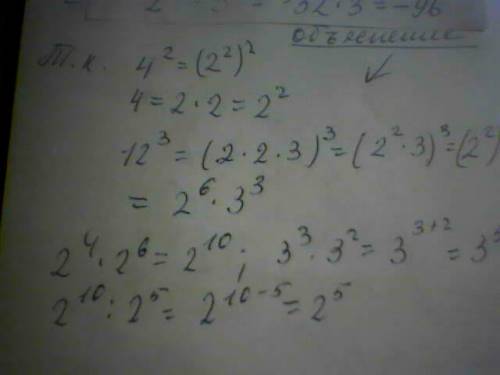 32 · 3 = -96
объяснение
Т.к. 4² = (2²)²
4 = 2 · 2 = 2²
12³ = (2 · 2 · 3)³ = (2² · 3)³ = (2²)
= 2⁶ · 3³
2⁴ · 2⁶ = 2¹⁰; 3³ · 3² = 3³⁺² = 3⁵
2¹⁰ : 2⁵ = 2¹⁰⁻⁵ = 2⁵